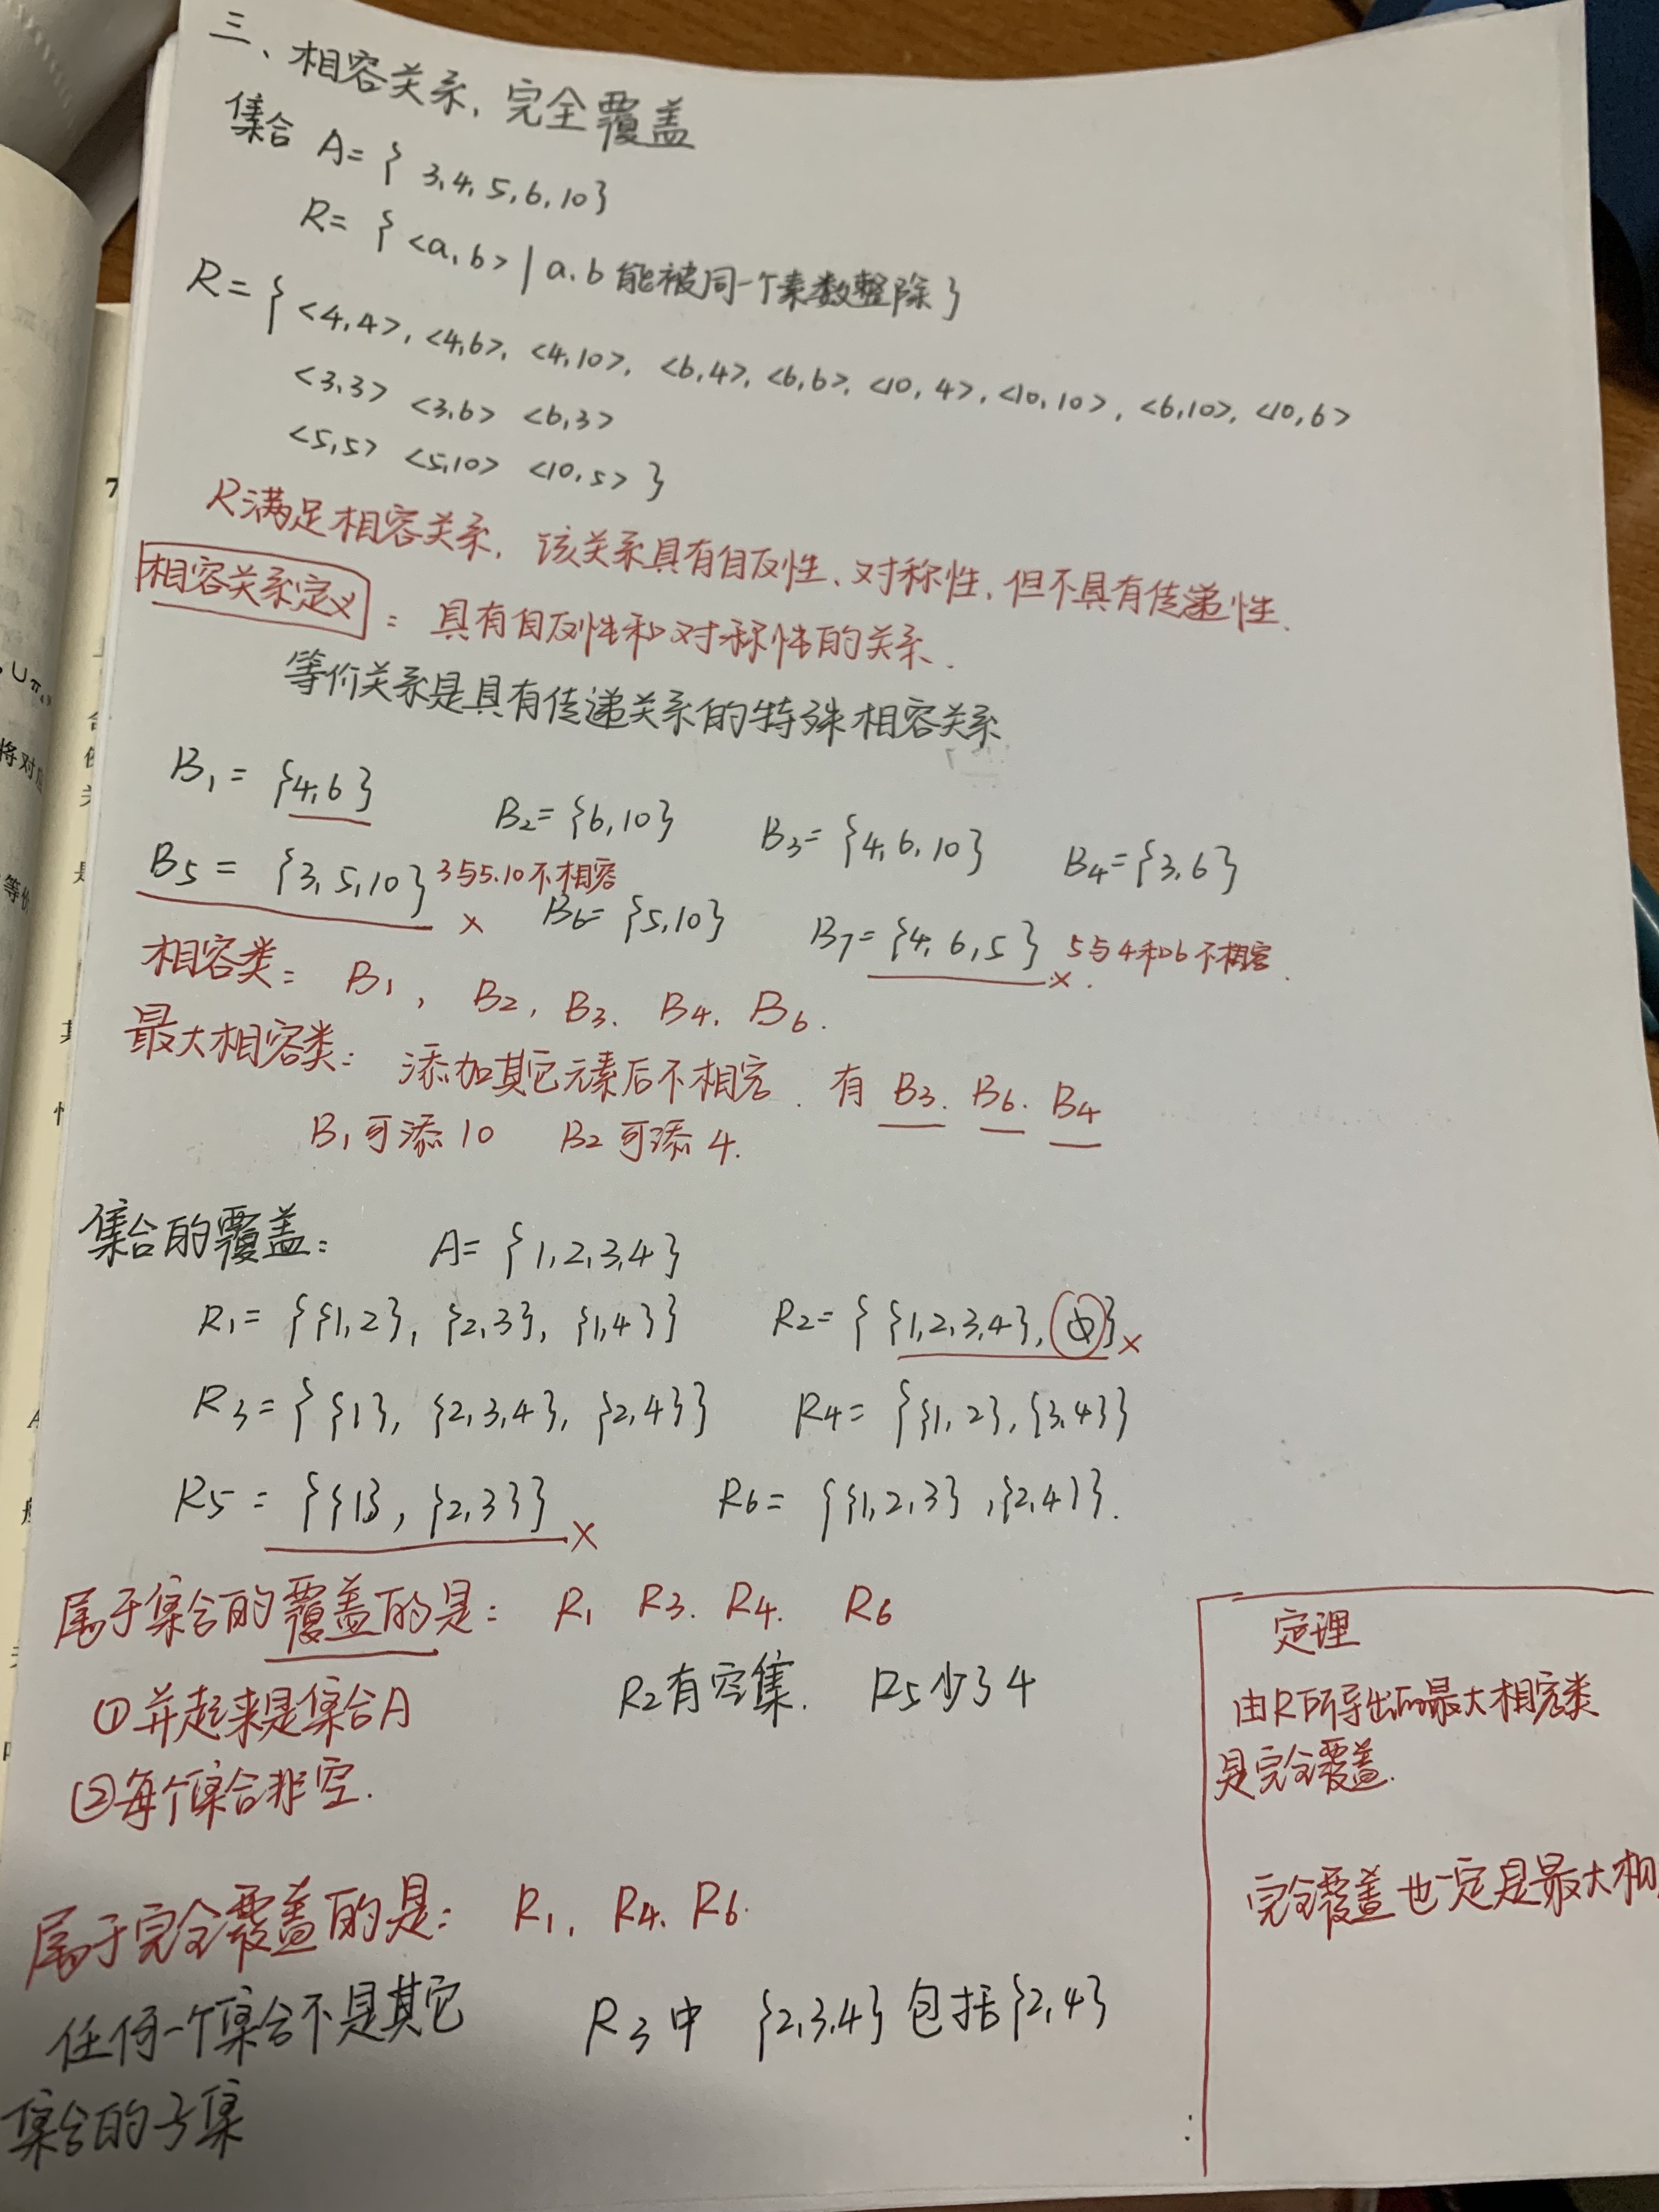 三、相容关系,完全覆盖
集合 A={3,4,5,6,10}
R={<a,b>|a.b能被同一个素数整除}
R={<4,4>,<4,6>,<4,10>,<6,4>,<6,6>,<10,4>,<10,10>,<6,10>,<10,6>
<3,3> <3,6> <6,3>
<5,5> <5,10> <10,5>}
R满足相容关系,该关系具有自反性、对称性,但不具有传递性.
相容关系定义:具有自反性和对称性的关系.
等价关系是具有传递关系的特殊相容关系
B1={4,6} B2={6,10} B3={4,6,10} B4={3,6}
B5={3,5,10} 3与5.10不相容 × B6={5,10} B7={4,6,5} × 5与4和6不相容.
相容类: B1, B2, B3. B4. B6.
最大相容类: 添加其它元素后不相容. 有 B3. B6. B4
B1可添10 B2可添4.
集合的覆盖: A={1,2,3,4}
R1={{1,2},{2,3},{1,4}} R2={{1,2,3,4},Φ}×
R3={{1},{2,3,4},{2,4}} R4={{1,2},{3,4}}
R5={{1},{2,3}}× R6={{1,2,3},{2,4}}.
属于集合的覆盖的是: R1 R3. R4. R6
①并起来是集合A R2有空集. R5少了4
②每个集合非空.
属于完全覆盖的是: R1, R4. R6.
任何一个集合不是其它 R3中 {2,3,4}包括{2,4}
集合的子集
定理
由R所导出的最大相容类
是完全覆盖.
完全覆盖也一定是最大相
7
∪π
将对应
等价